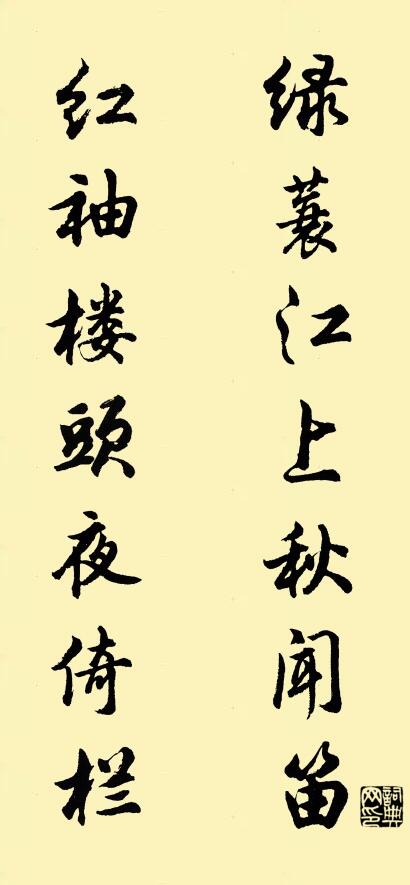 绿蓑江上秋闻笛
红袖楼頭夜倚栏
詞典网印